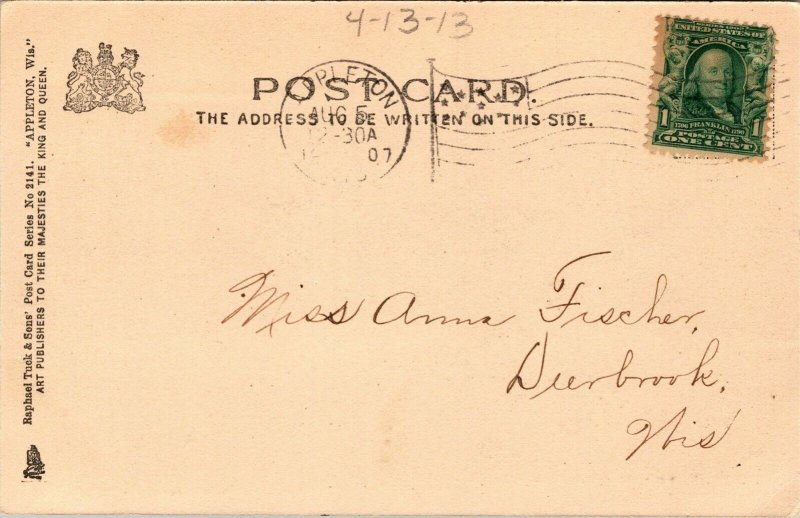 4-13-13
POST CARD.
THE ADDRESS TO BE WRITTEN ON THIS SIDE.
APPLETON
AUG 5
12-30A
07
UNITED STATES OF
AMERICA
1 1706 FRANKLIN 1790 1
POSTAGE
ONE CENT
Raphael Tuck & Sons' Post Card Series No 2141. "APPLETON, Wis."
ART PUBLISHERS TO THEIR MAJESTIES THE KING AND QUEEN.
Miss Anna Fischer,
Deerbrook,
Wis